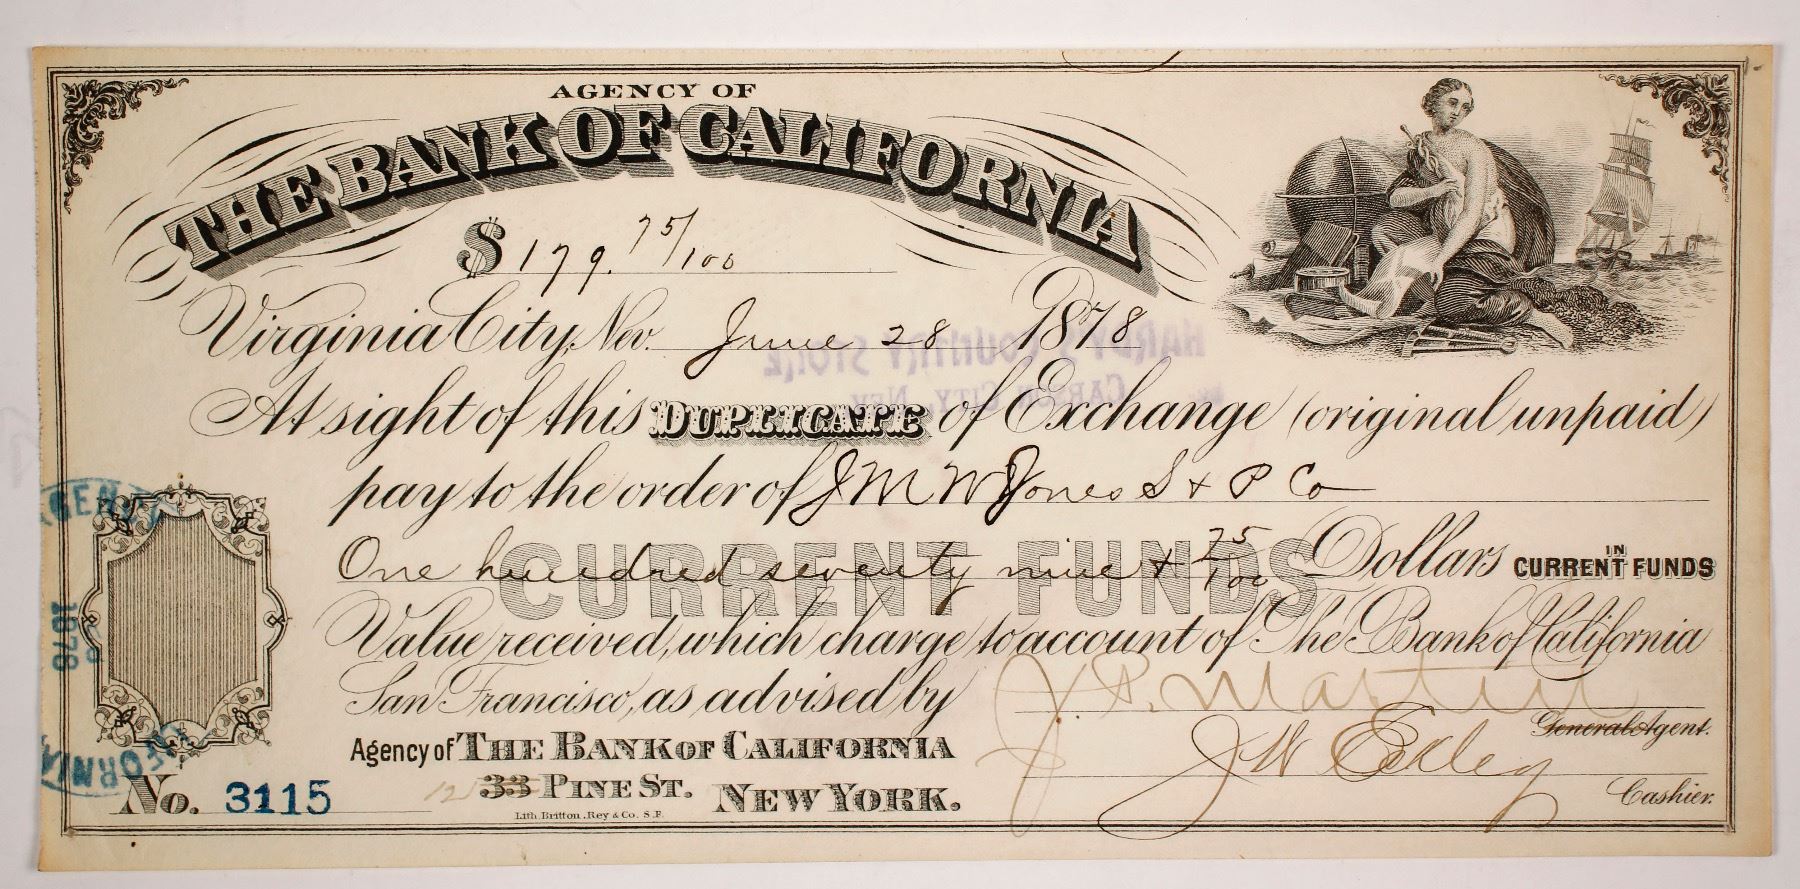 AGENCY OF
THE BANK OF CALIFORNIA
$179.75/100
Virginia City, Nev. June 28 1878
HARDY'S COUNTRY STORE
CARSON CITY, NEV.
At sight of this DUPLICATE of Exchange (original unpaid)
pay to the order of J M W Jones S & P Co
CURRENT FUNDS
One hundred seventy nine & 75/100 Dollars IN CURRENT FUNDS
Value received, which charge to account of The Bank of California
San Francisco, as advised by J. P. Martin
General Agent.
Agency of THE BANK OF CALIFORNIA
33 PINE ST. NEW YORK.
J W Eckley
Cashier.
AGENCY
1878
CALIFORNIA
No. 3115
Lith. Britton, Rey & Co. S.F.